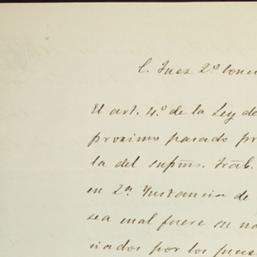 C. Juez 2º
El art. 4.º de la Ley de
proximo pasado
ta del supmo. Trab.
en 2ª Instancia de
sea cual fuere su
ciados por los